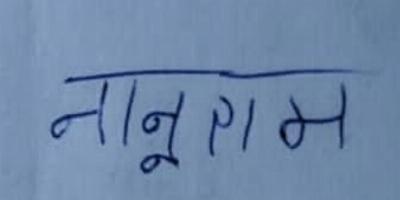 नानूराम